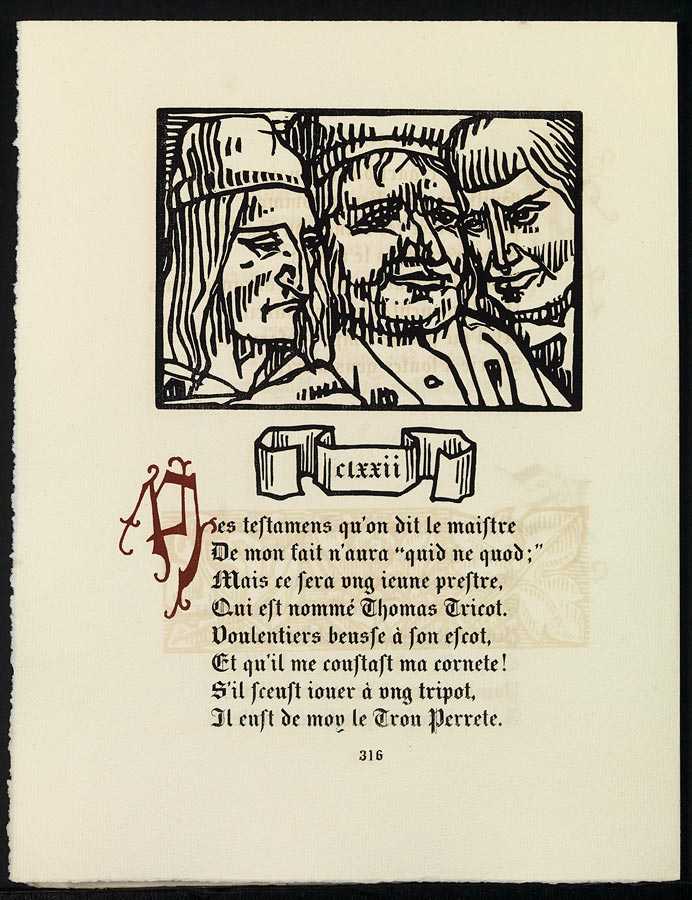 clxxii
Des teſtamens qu'on dit le maiſtre
De mon fait n'aura “quid ne quod;”
Mais ce ſera vng ieune preſtre,
Qui eſt nommé Thomas Tricot.
Voulentiers beusſe à ſon eſcot,
Et qu'il me couſtaſt ma cornete!
S'il ſceuſt iouer à vng tripot,
Il euſt de moy le Trou Perrete.
316